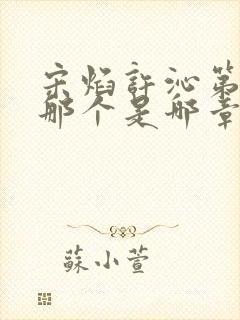 宋焰許沁第
那个是那章
蘇小萱